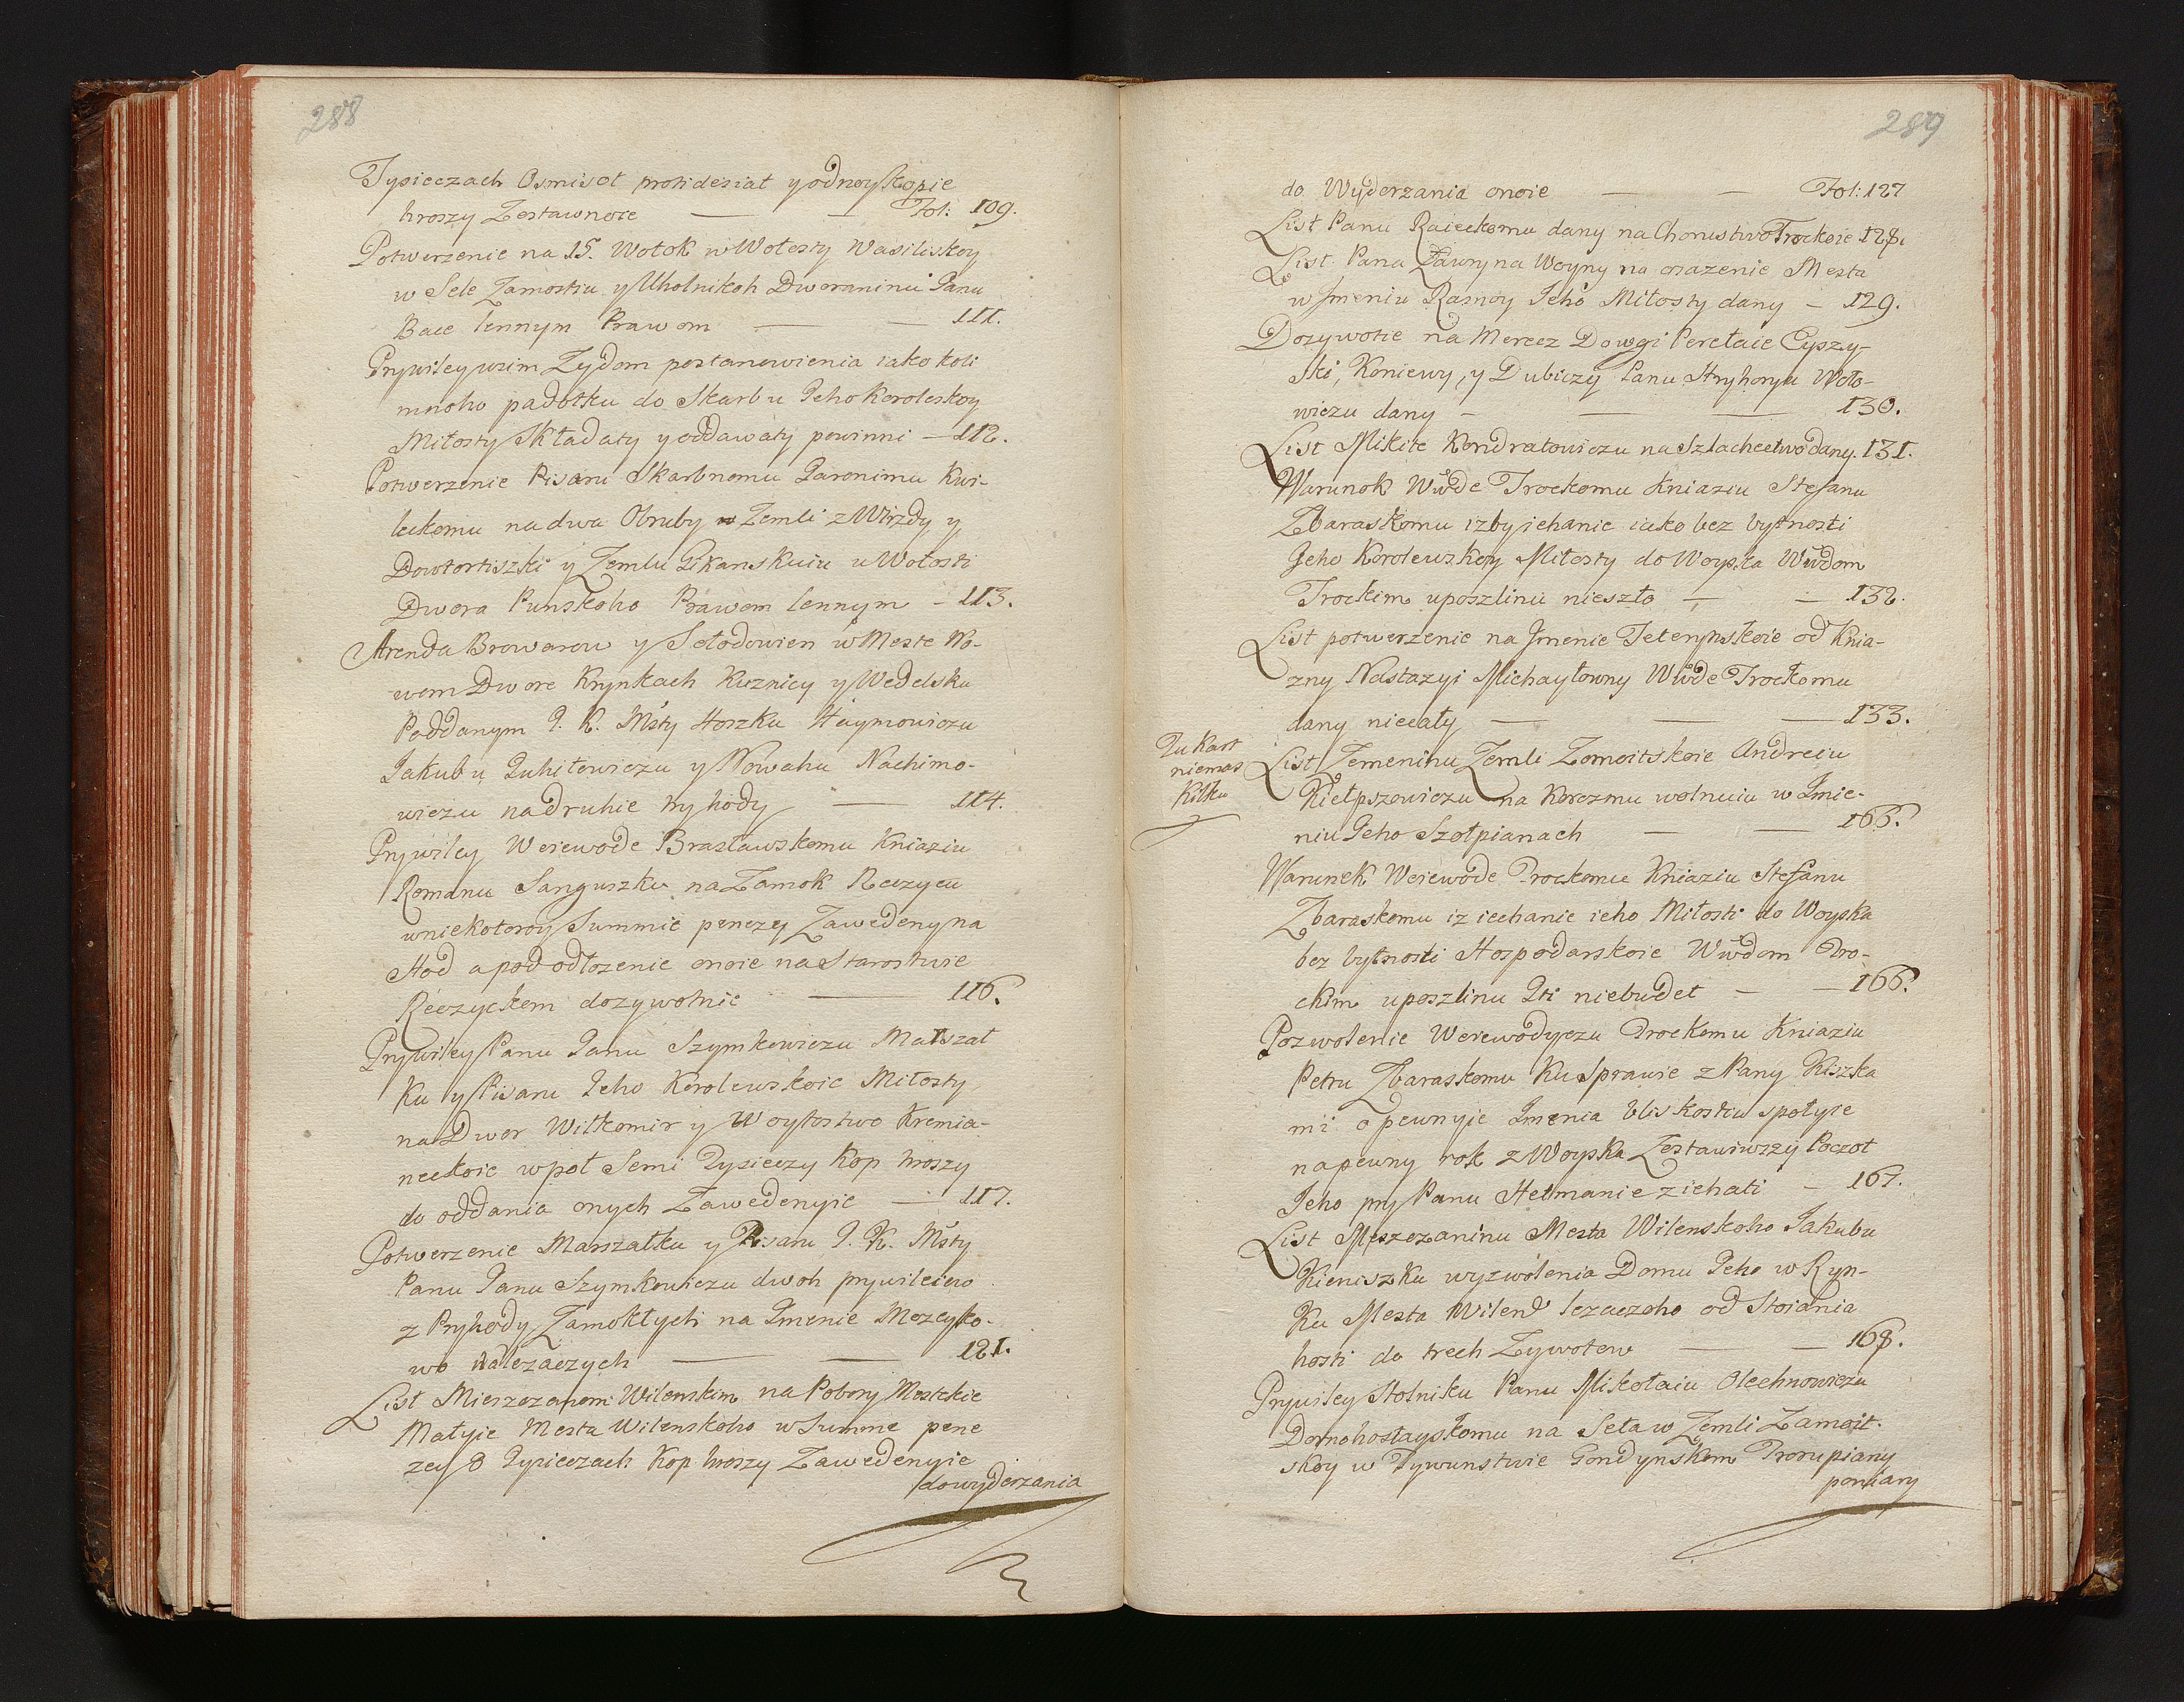 288
Tysieczach Osmisot protidesiat y odnoy Kopie
hroszy Zestawnoie Fol: 109.
Potwerzenie na 15. Wołok w Wołosty Wasiliskoy
w Sele Zamostiu y Uholnikoh Dworaninu Panu
Bace lennym Prawom 111.
Prywiley wsim Zydom postanowienia iako koli
mnoho padatku do Skarbu Jeho Koroleskoy
Miłosty Składaty y oddawaty powinni 112.
Potwerzenie Pisaru Skarbnomu Jaronimu Kwi-
leckomu na dwa Obruby Zemli z Wirzdy y
Dowtortiszki y Zemlu Pikanskuiu u Wołosti
Dwora Punskoho Prawom lennym 113.
Arenda Browarow y Sełodowien w Meste No-
wom Dwore Krynkach Kuznicy y Wedelsku
Poddanym J. K. Msty Horszku Haymowiczu
Jakubu Juhiłowiczu y Nowahu Nachimo-
wiczu na druhie try hody 114.
Prywiley Woiewode Brasławskomu Kniaziu
Romanu Sanguszku na Zamok Reczycu
w niekotoroy Summie penezey Zawedeny na
Hod a pod odłozenie onoie na Starostwie
Reczyckom dozywotnie 116.
Prywiley Panu Janu Szymkowiczu Marszał
ku y Pisaru Jeho Korolewskoie Miłosty
na Dwor Wiłkomir y Woytostwo Kremia-
neckoie w poł Semi Tysieczy Kop hroszy
do oddania onych Zawedenyie 117.
Potwerzenie Marszałku y Pisaru J. K. Msty
Panu Janu Szymkowiczu dwoh prywileiew
z Pryhody Zamokłych na Imenie Mozeyko-
wo należaczych 121.
List Mieszczanom Wilenskim na Pobory Mestskie
Małyie Mesta Wilenskoho w Summe pene
zey 8 Tysieczach Kop hroszy Zawedenyie
do wyderzania
289
do Wyderzania onoie Fol: 127
List Panu Raieckomu dany na Chorustwo Trockoie 128.
List Pana Ławryna Woyny na osazenie Mesta
w Jmeniu Rasnoy Jeho Miłosty dany 129.
Dozywotie na Merecz Dowgi Perełaie Eyszy-
szki, Koniewy, y Dubiczy Panu Hryhoryu Woło-
wiczu dany 130.
List Mikite Kondratowiczu na Szlachectwo dany. 131.
Warunok Wwde Trockomu Kniaziu Stefanu
Zbaraskomu iz by iehanie iako bez bytnosti
Jeho Korolewskoy Miłosty do Woyska Wwdom
Trockim uposzlinu nieszło 132.
List potwerzenie na Jmenie Teterynskoie od Knia-
zny Nastazyi Michayłowny Wwde Trockomu
dany niecały 133.
Tu Kart
niemasz
Kilku
List Zemeninu Zemli Zomoitskoie Andreiu
Kiełpszowiczu na Korczmu wolnuiu w Jmie-
niu Jeho Szołpianach 165.
Warunek Woiewode Trockomu Kniaziu Stefanu
Zbaraskomu iz iechanie ieho Miłosti do Woyska
bez bytnosti Hospodarskoie Wwdom Tro-
ckim uposzlinu Iti niebudet 166.
Pozwolenie Woiewodyczu Trockomu Kniaziu
Petru Zbaraskomu Ku Sprawie z Pany Kiszka
mi o pewnyie Jmenia bliskostiu społyie
na pewny rok z Woyska Zestawiwszy Poczot
Jeho pry Panu Hetmanie ziehati 167.
List Meszczaninu Mesta Wilenskoho Jakubu
Kieniszku wyzwolenia Domu Jeho w Ryn-
ku Mesta Wilens lezaczoho od Stoiania
hosti do trech Zywotow 168.
Prywiley Stolniku Panu Mikołaiu Olechnowiczu
Dorohostayskomu na Seła w Zemli Zamoit-
skoy w Tywunstwie Gondynskom Trorupiany
poniary